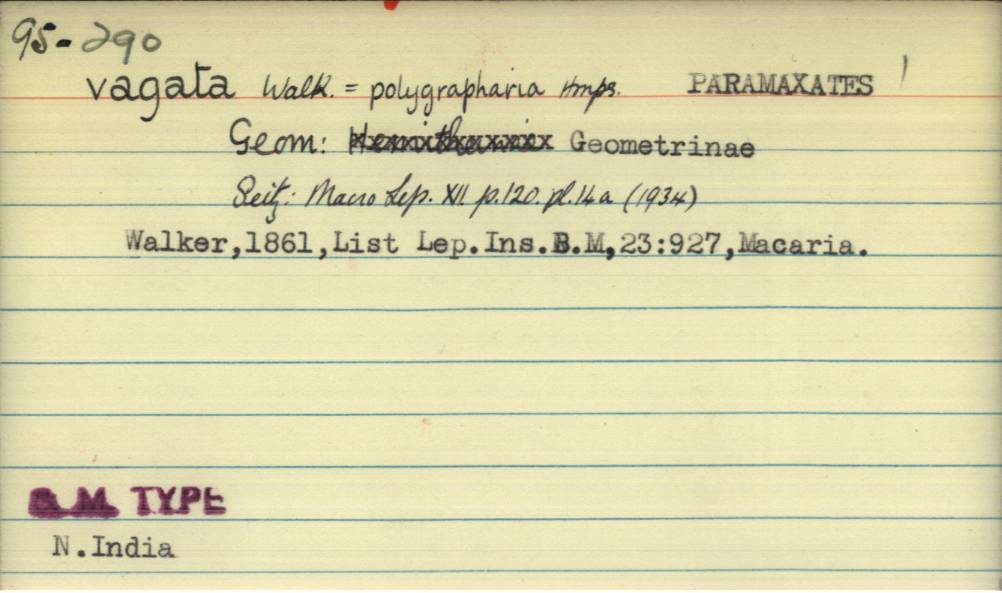 95-290
vagata Walk. = polygrapharia Hmps. PARAMAXATES
Geom: Geometrinae
Seitz: Macro Lep. XII p.120. pl.14a (1934)
Walker,1861,List Lep.Ins.B.M,23:927,Macaria.
B.M. TYPE
N.India